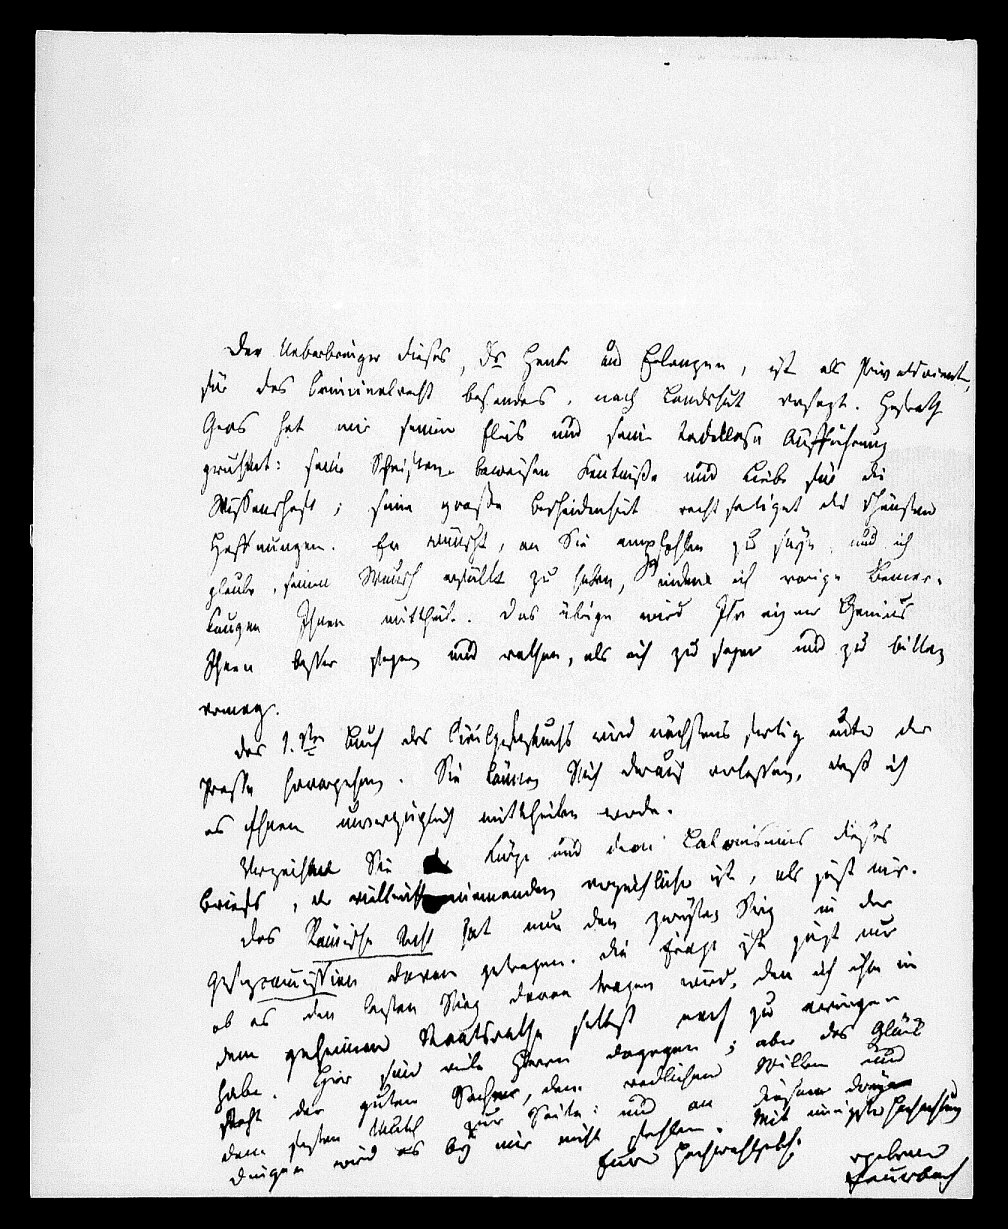 Der Ueberbringer dieses, Dr Henke aus Erlangen, ist als Privatdocent,
für das Criminalrecht besonders, nach Landshut versezt. Hofrath
Gros hat mir seinen Fleis und seine tadellose Aufführung
gerühmt: seine Schriften beweisen Kentniße und Liebe für die
Wissenschaft; seine große Bescheidenheit rechtfertiget die schönsten
Hoffnungen. Er wünscht, an Sie empfohlen zu seyn, und ich
glaube, seinen Wunsch erfüllt zu haben, indem ich vorige Bemer-
kungen Ihnen mittheile. Das übrige wird Ihr eigner Genius
Ihnen besser sagen und rathen, als ich zu sagen und zu bitten
vermag.
Das 1.ste Buch des Civilgesetzbuchs wird nächstens fertig unter der
Presse hervorgehen. Sie können Sich darauf verlassen, daß ich
es Ihnen unverzüglich mittheilen werde.
Verzeihen Sie Kürze und dem Laconismus dieses
Briefs, der vielleicht niemanden verzeihlicher ist, als jezt mir.
Das Römische Recht hat nun den zweyten Sieg in der
Gesezcommission davon getragen. Die Frage ist jezt nur
ob es den lezten Sieg davon tragen wird, den ich ihm in
dem geheimen Staatsrathe selbst noch zu erringen
habe. Hier sind viele Herren dagegen; aber das Glück
steht der guten Sache, dem redlichen Willen und
dem festen Muth zur Seite: und an diesen dreyen
Dingen wird es bey mir nicht fehlen. Mit innigster Hochachtung
Euer Hochwohlgeb.
ergebener
Feuerbach